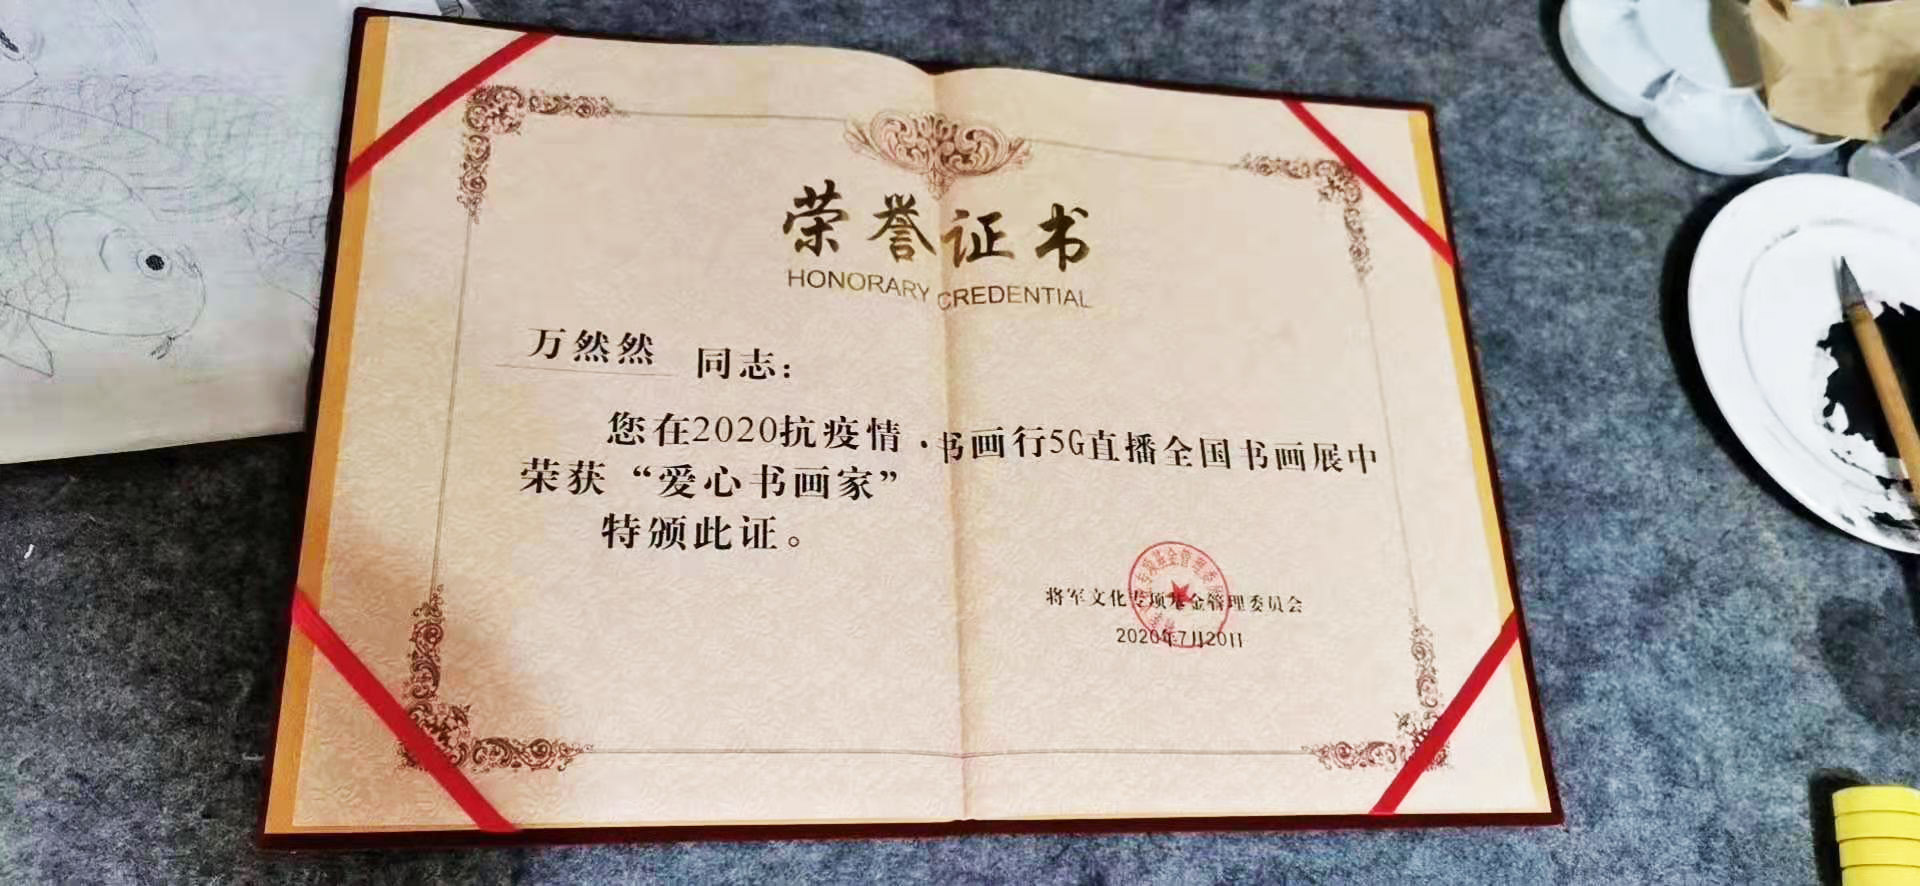 荣誉证书
HONORARY CREDENTIAL
万然然 同志：
您在2020抗疫情·书画行5G直播全国书画展中
荣获“爱心书画家”
特颁此证。
将军文化专项基金管理委员会
2020年7月20日